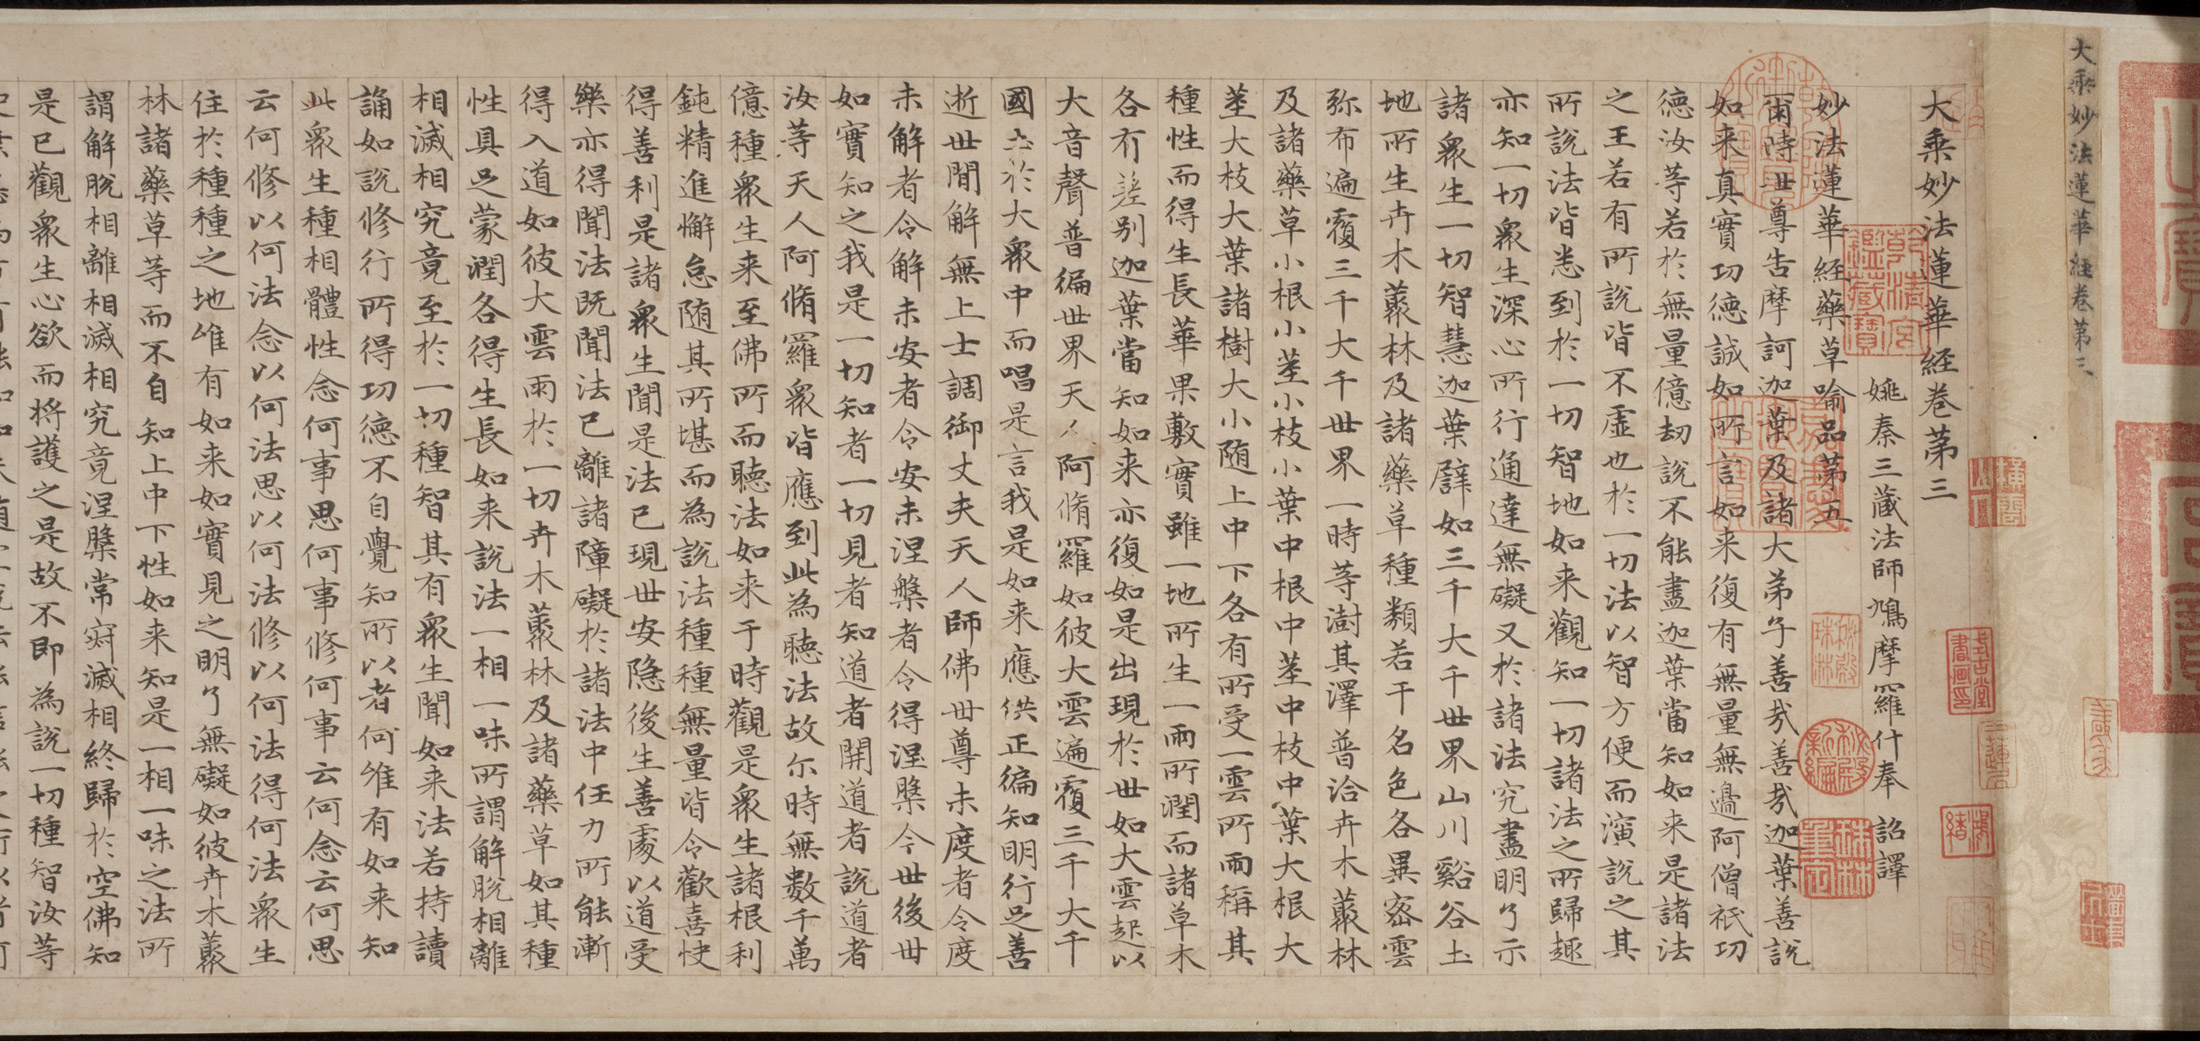 大乘妙法蓮華經卷第三
大乘妙法蓮華經卷第三
姚秦三藏法師鳩摩羅什奉 詔譯
妙法蓮華経藥草喻品第五
爾時世尊告摩訶迦葉及諸大弟子善㢤善㢤迦葉善說
如来真實功德誠如所言如来復有無量無邊阿僧祇功
德汝等若於無量億劫說不能盡迦葉當知如来是諸法
之王若有所說皆不虛也於一切法以智方便而演說之其
所說法皆悉到於一切智地如来觀知一切諸法之所歸趣
亦知一切衆生深心所行通達無礙又於諸法究盡明了示
諸衆生一切智慧迦葉譬如三千大千世界山川谿谷土
地所生卉木藂林及諸藥草種類若干名色各異密雲
弥布遍覆三千大千世界一時等澍其澤普洽卉木藂林
及諸藥草小根小莖小枝小葉中根中莖中枝中葉大根大
莖大枝大葉諸樹大小随上中下各有所受一雲所雨稱其
種性而得生長華果敷實雖一地所生一雨所潤而諸草木
各有差别迦葉當知如来亦復如是出現於世如大雲起以
大音聲普徧世界天人阿脩羅如彼大雲遍覆三千大千
國土於大衆中而唱是言我是如来應供正徧知明行足善
逝世間解無上士調御丈夫天人師佛世尊未度者令度
未解者令解未安者令安未涅槃者令得涅槃今世後世
如實知之我是一切知者一切見者知道者開道者說道者
汝等天人阿脩羅衆皆應到此為聽法故尒時無数千萬
億種衆生来至佛所而聽法如来于時觀是衆生諸根利
鈍精進懈怠随其所堪而為說法種種無量皆令歡喜快
得善利是諸衆生聞是法已現世安隱後生善處以道受
樂亦得聞法既聞法已離諸障礙於諸法中任力所能漸
得入道如彼大雲雨於一切卉木藂林及諸藥草如其種
性具足蒙潤各得生長如来說法一相一味所謂解脫相離
相滅相究竟至於一切種智其有衆生聞如来法若持讀
誦如說修行所得功德不自覺知所以者何唯有如来知
此衆生種相體性念何事思何事修何事云何念云何思
云何修以何法念以何法思以何法修以何法得何法衆生
住於種種之地唯有如来如實見之明了無礙如彼卉木藂
林諸藥草等而不自知上中下性如来知是一相一味之法所
謂解脫相離相滅相究竟涅槃常寂滅相終歸於空佛知
是已觀衆生心欲而将護之是故不即為說一切種智汝等